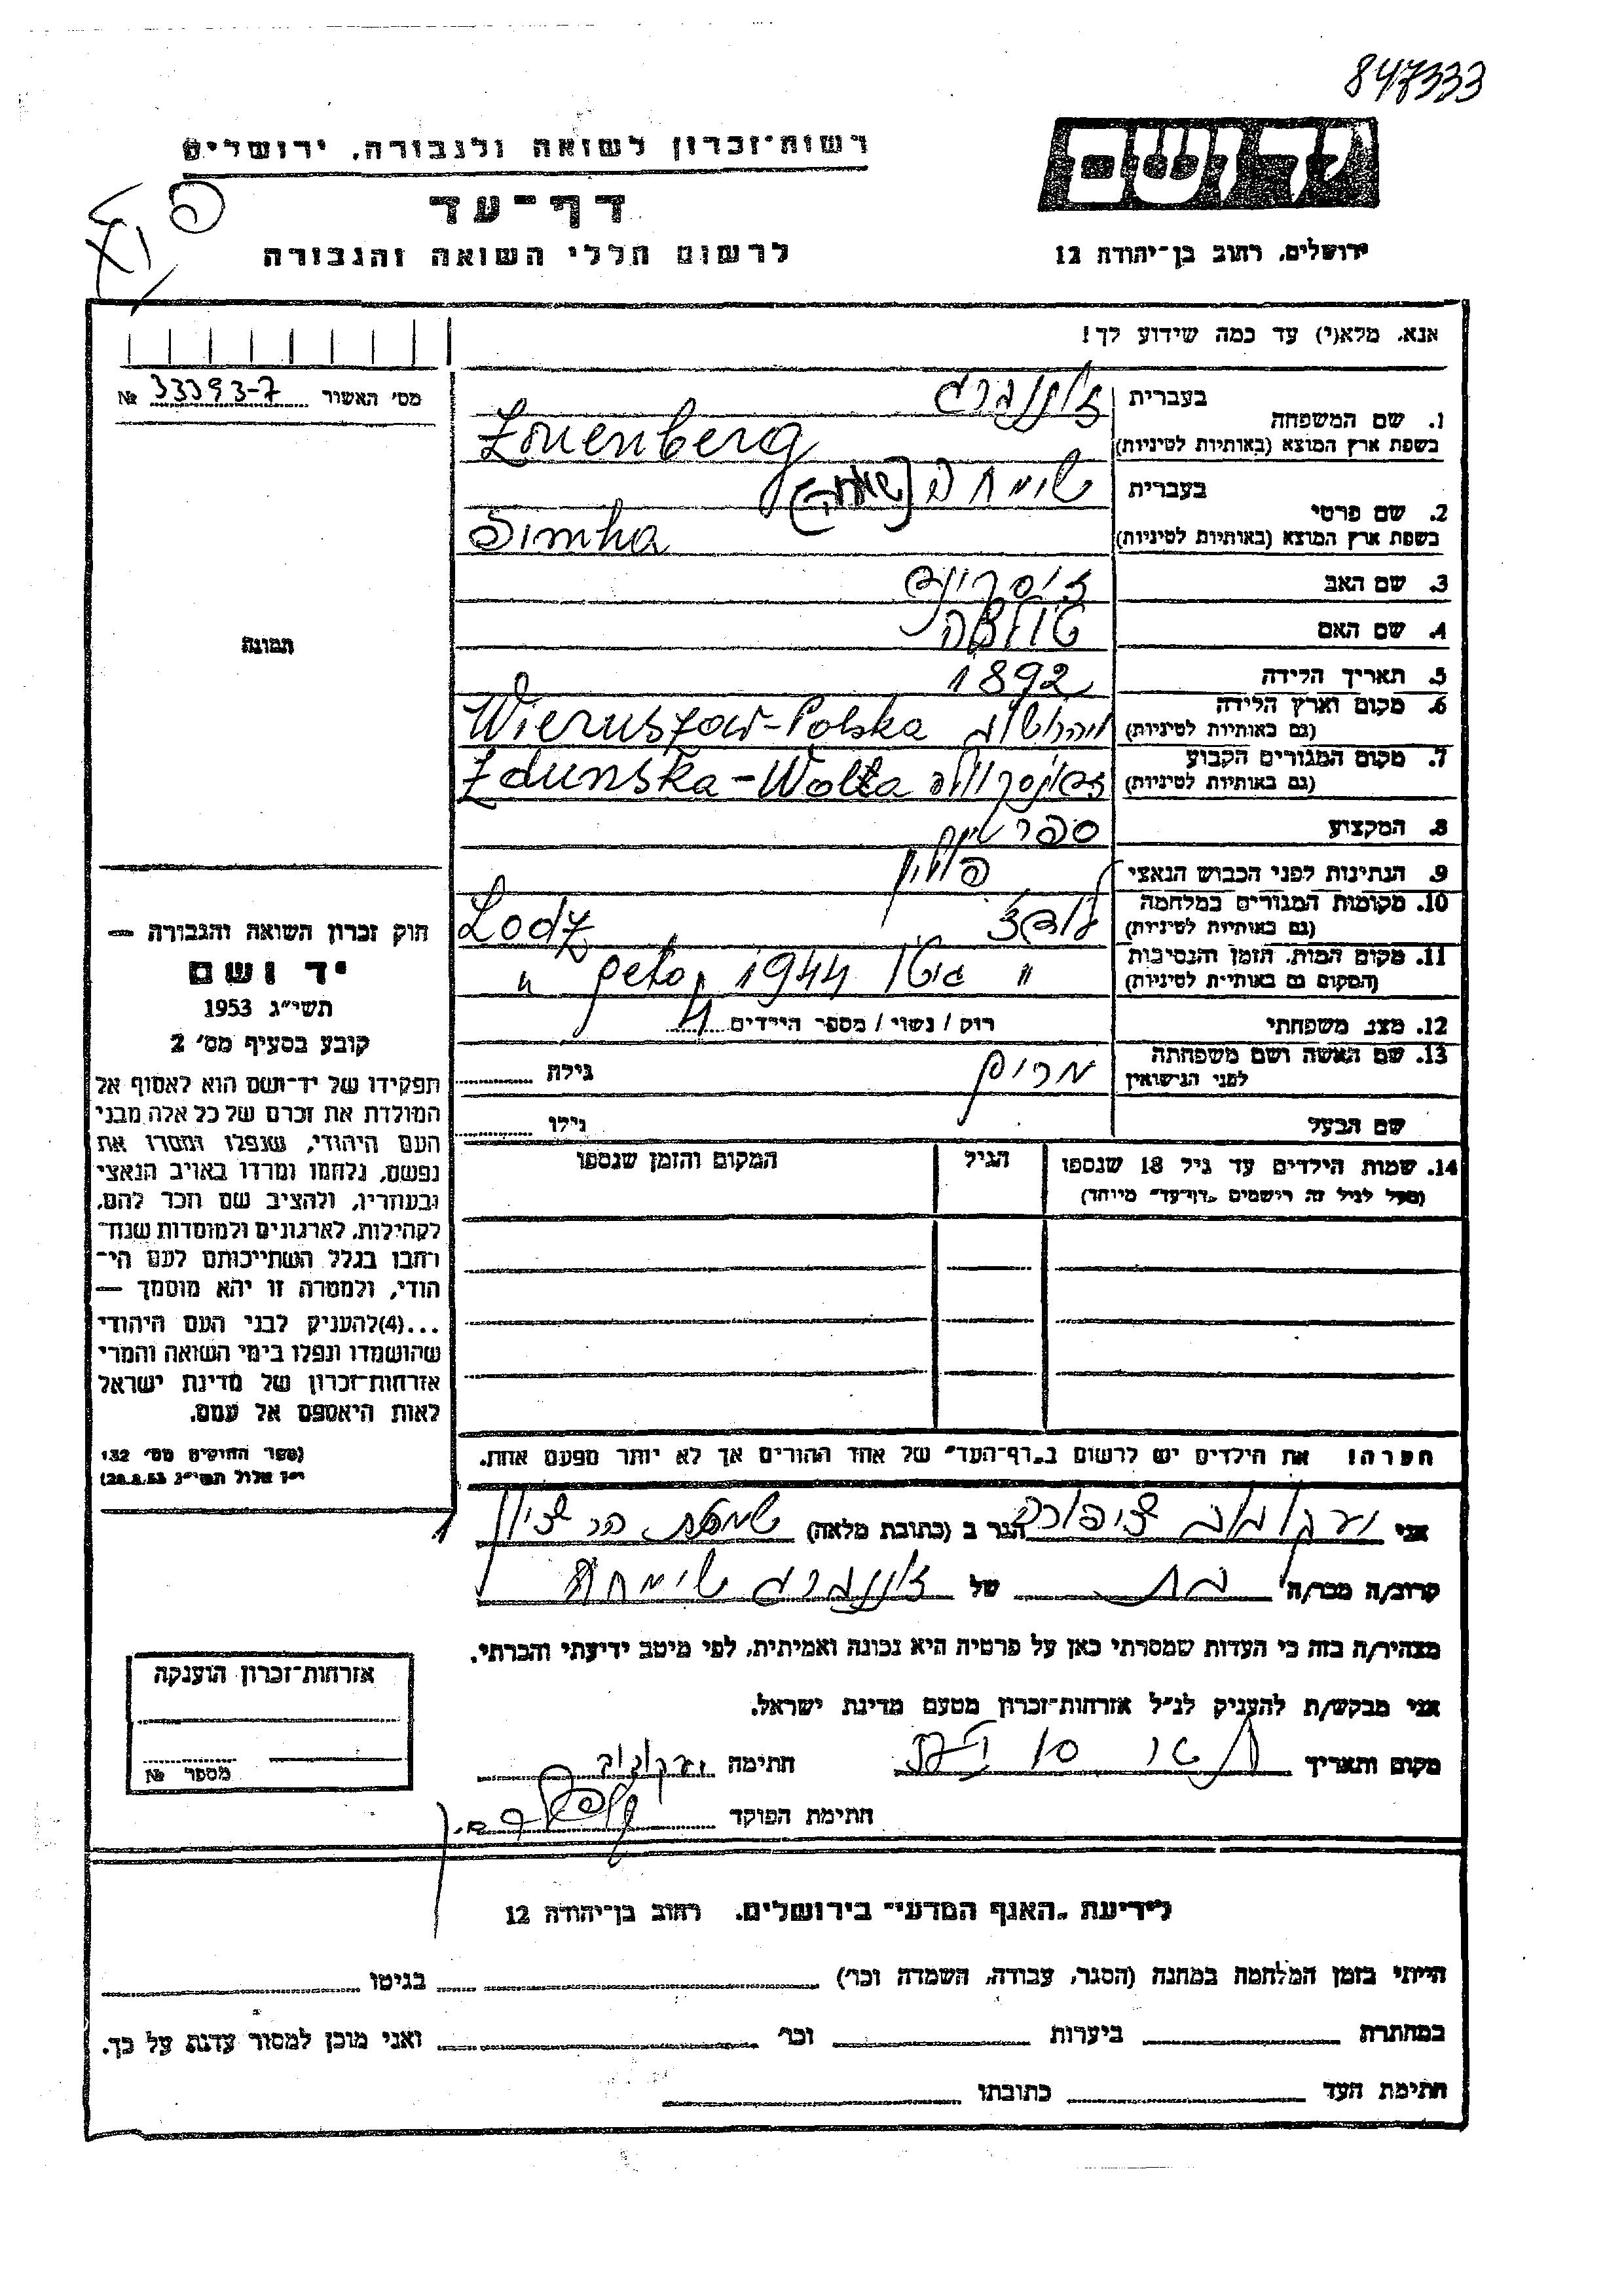 847333
רשות־זכרון לשואה ולגבורה, ירושלים
יד ושם
דף־עד
לרשום חללי השואה והגבורה
ירושלים, רחוב בן־יהודה 12
אנא, מלא(י) עד כמה שידוע לך!
מס' האשור 33393-7 №
תמונה
1. שם המשפחה
בעברית זוננברג
בשפת ארץ המוצא (באותיות לטיניות) Zonenberg
2. שם פרטי
בעברית שימחה
בשפת ארץ המוצא (באותיות לטיניות) Simha
3. שם האב
4. שם האם
5. תאריך הלידה 1892
6. מקום וארץ הלידה
(גם באותיות לטיניות) Wieruszow-Polska
7. מקום המגורים הקבוע
(גם באותיות לטיניות) Zdunska-Wolta
8. המקצוע
9. הנתינות לפני הכבוש הנאצי פולין
10. מקומות המגורים במלחמה
(גם באותיות לטיניות) לודז Lodz
11. מקום המות, הזמן והנסיבות
(המקום גם באותיות לטיניות) " גיטו 1944 geto "
12. מצב משפחתי רוק / נשוי / מספר הילדים 4
13. שם האשה ושם משפחתה
לפני הנישואין מרים גילה
שם הבעל גילו
14. שמות הילדים עד גיל 18 שנספו הגיל המקום והזמן שנספו
(מעל לגיל זה רישמים „דף־עד" מיוחד)
הערה! את הילדים יש לרשום ב„דף־העד" של אחד ההורים אך לא יותר מפעם אחת.
חוק זכרון השואה והגבורה —
יד ושם
תשי"ג 1953
קובע בסעיף מס' 2
תפקידו של יד־ושם הוא לאסוף אל
המולדת את זכרם של כל אלה מבני
העם היהודי, שנפלו ומסרו את
נפשם, נלחמו ומרדו באויב הנאצי
ובעוזריו, ולהציב שם וזכר להם,
לקהילות, לארגונים ולמוסדות שנח־
רבו בגלל השתייכותם לעם הי־
הודי, ולמטרה זו יהא מוסמך —
...(4)להעניק לבני העם היהודי
שהושמדו ונפלו בימי השואה והמרי
אזרחות־זכרון של מדינת ישראל
לאות היאספם אל עמם.
(ספר החוקים מס' 132
י"ז אלול תשי"ג 28.8.53)
אני ציפורה הגר ב (כתובת מלאה)
קרוב/ה מכר/ה בת של זוננברג שימחה
מצהיר/ה בזה כי העדות שמסרתי כאן על פרטיה היא נכונה ואמיתית, לפי מיטב ידיעתי והכרתי.
אני מבקש/ת להעניק לנ"ל אזרחות־זכרון מטעם מדינת ישראל.
מקום ותאריך חתימה
חתימת הפוקד
אזרחות־זכרון הוענקה
מספר №
לידיעת „האגף המדעי" בירושלים, רחוב בן־יהודה 12
הייתי בזמן המלחמה במחנה (הסגר, עבודה, השמדה וכו') בגיטו
במחתרת ביערות וכו' ואני מוכן למסור עדות על כך.
חתימת העד כתובתו